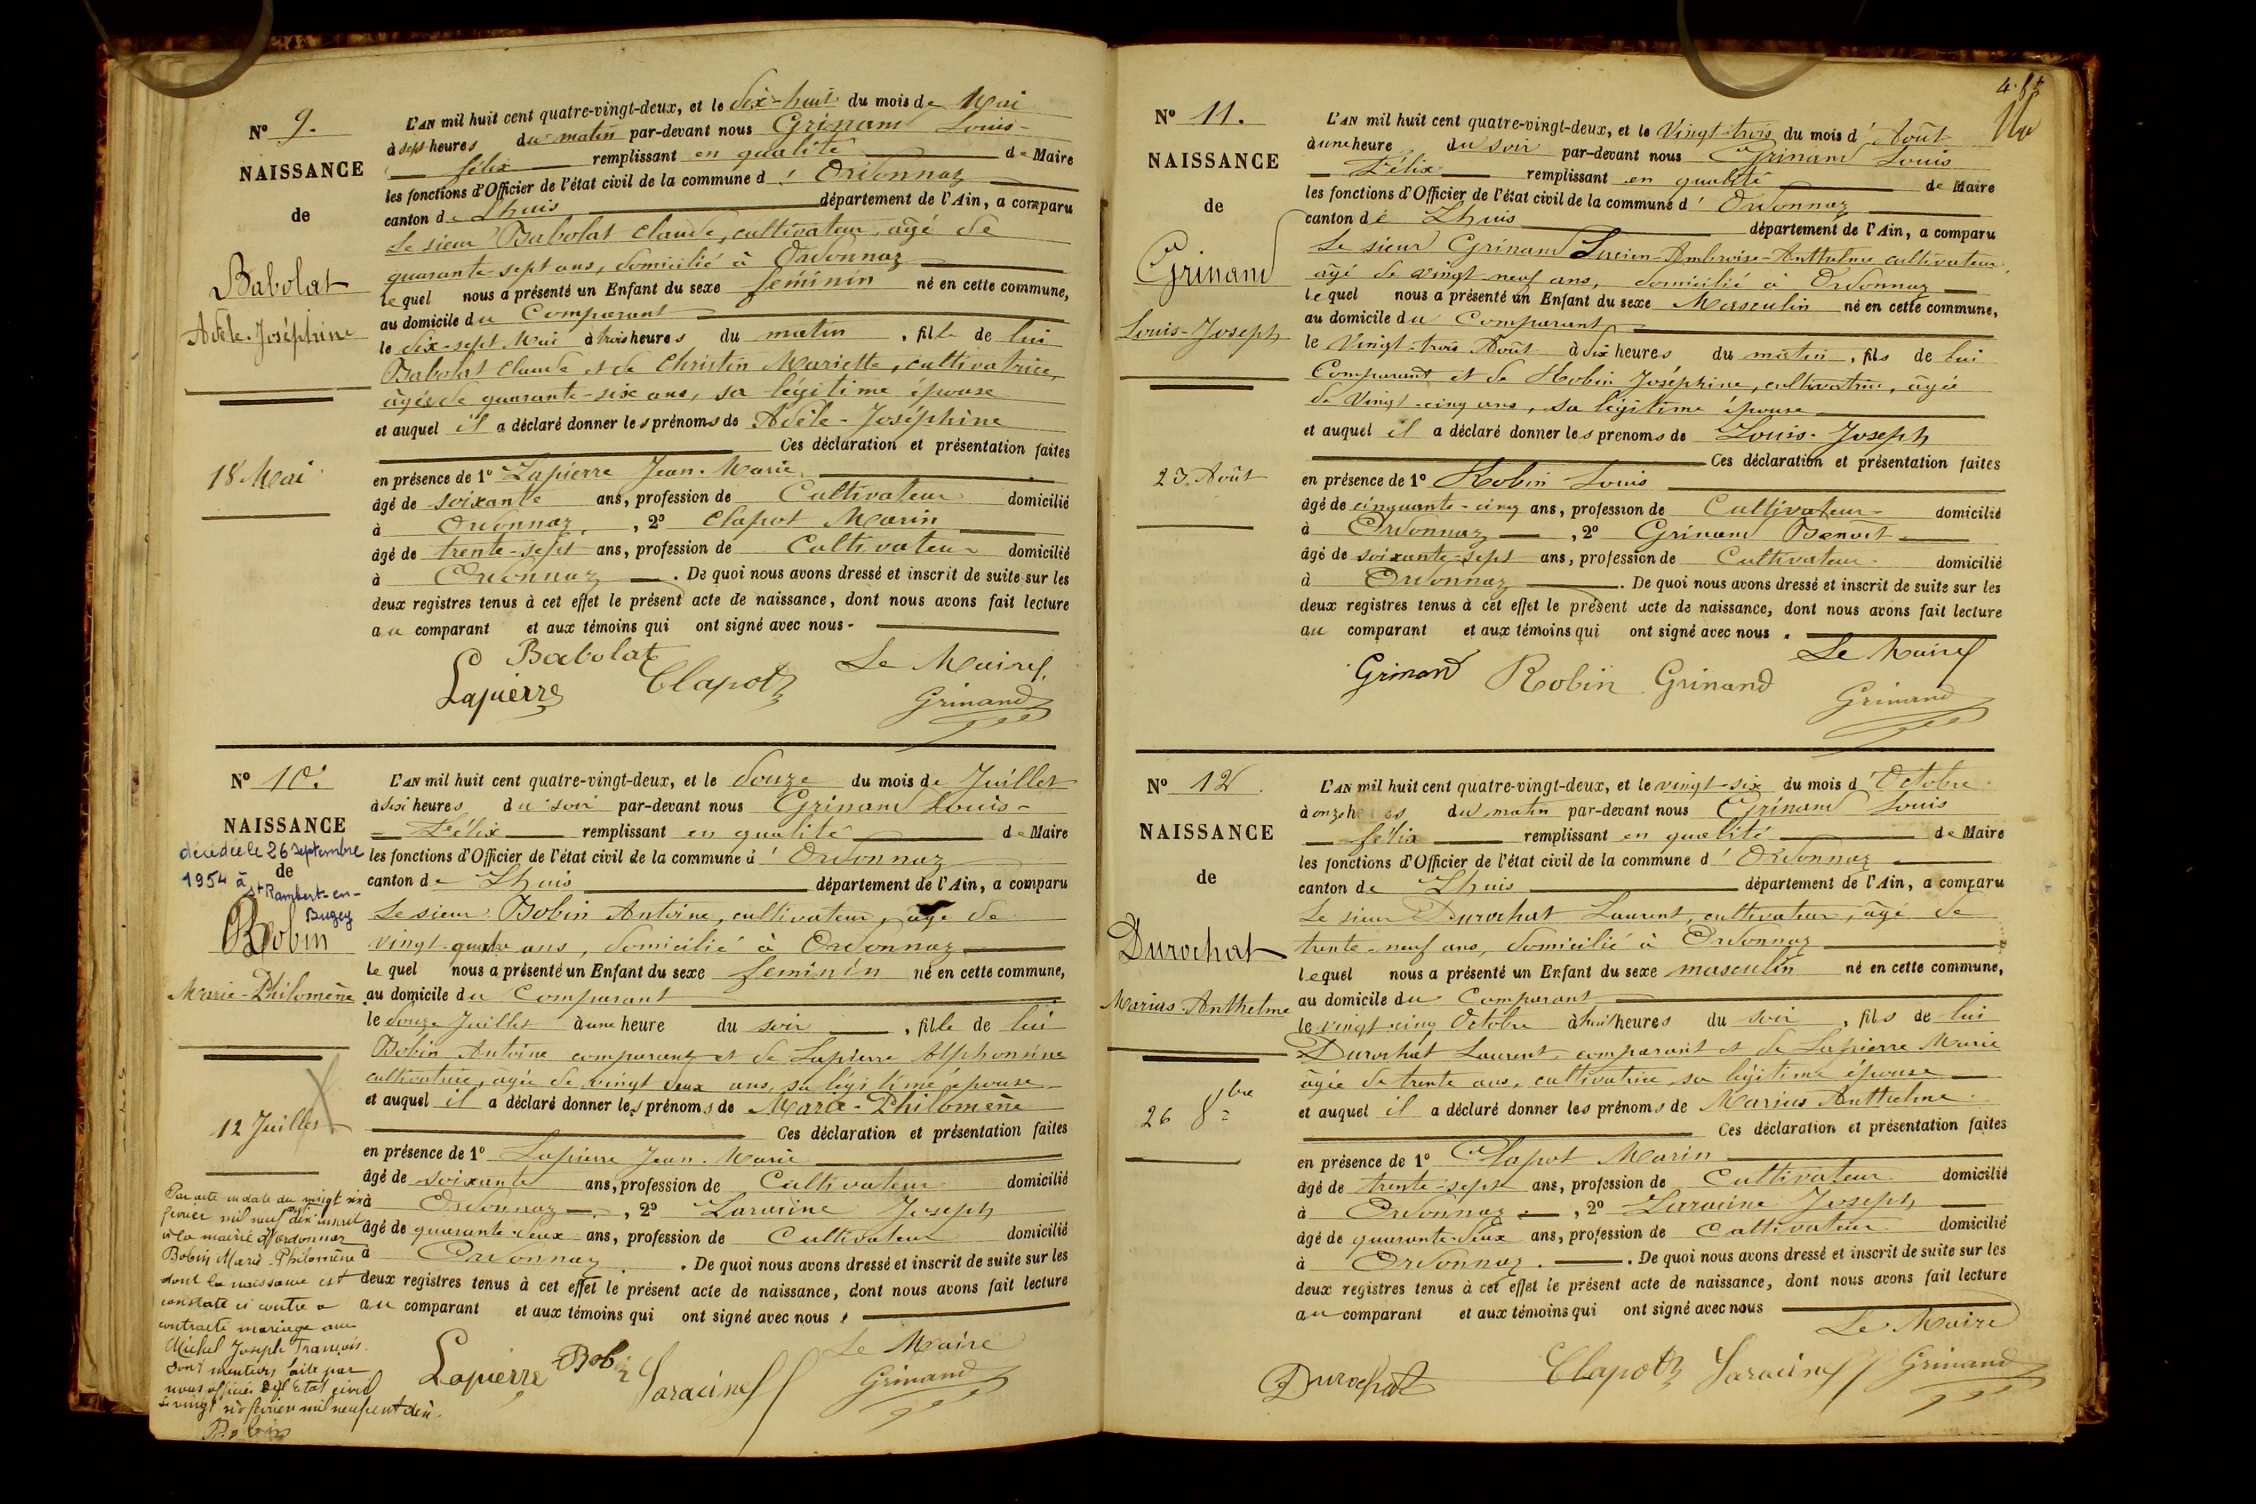 Nº 9.
NAISSANCE
de
Babolat
Adèle-Joséphine
18 Mai
L'AN mil huit cent quatre-vingt-deux, et le dix-huit du mois de Mai
à sept heures du matin par-devant nous Grinand Louis-
félix remplissant en qualité de Maire
les fonctions d'Officier de l'état civil de la commune d' Ordonnaz
canton de Lhuis département de l'Ain, a comparu
Le sieur Babolat Claude, cultivateur, âgé de
quarante-sept ans, domicilié à Ordonnaz
lequel nous a présenté un Enfant du sexe féminin né en cette commune,
au domicile du Comparant
le dix-sept Mai à trois heures du matin, fille de lui
Babolat Claude et de Christin Mariette, cultivatrice,
âgée de quarante-six ans, sa légitime épouse
et auquel il a déclaré donner les prénoms de Adèle-Joséphine
Ces déclaration et présentation faites
en présence de 1º Lapierre Jean-Marie
âgé de soixante ans, profession de Cultivateur domicilié
à Ordonnaz, 2º Clapot Marin
âgé de trente-sept ans, profession de Cultivateur domicilié
à Ordonnaz. De quoi nous avons dressé et inscrit de suite sur les
deux registres tenus à cet effet le présent acte de naissance, dont nous avons fait lecture
au comparant et aux témoins qui ont signé avec nous-
Babolat Le Maire
Lapierre Clapot Grinand
Nº 10.
NAISSANCE
décédée le 26 septembre
de
1954 à St Rambert-en-
Bugey
Bobin
Marie-Philomène
12 Juillet
Par acte en date du vingt six
février mil neuf dix inscrit
à la mairie d'ordonnaz
Bobin Marie-Philomène
dont la naissance est
constaté ci contre a
contracté mariage avec
Michel Joseph François.
Dont mention faite par
nous officier de l'Etat civil
le vingt six février mil neuf cent dix.
Bobin
L'AN mil huit cent quatre-vingt-deux, et le douze du mois de Juillet
à six heures du soir par-devant nous Grinand Louis-
Félix remplissant en qualité de Maire
les fonctions d'Officier de l'état civil de la commune d' Ordonnaz
canton de Lhuis département de l'Ain, a comparu
Le sieur Bobin Antoine, cultivateur, âgé de
vingt-quatre ans, domicilié à Ordonnaz
lequel nous a présenté un Enfant du sexe féminin né en cette commune,
au domicile du Comparant
le douze Juillet à une heure du soir, fille de lui
Bobin Antoine comparant et de Lapierre Alphonsine
cultivatrice, âgée de vingt deux ans, sa légitime épouse
et auquel il a déclaré donner les prénoms de Marie-Philomène
Ces déclaration et présentation faites
en présence de 1º Lapierre Jean-Marie
âgé de soixante ans, profession de Cultivateur domicilié
à Ordonnaz, 2º Laracine Joseph
âgé de quarante-deux ans, profession de Cultivateur domicilié
à Ordonnaz. De quoi nous avons dressé et inscrit de suite sur les
deux registres tenus à cet effet le présent acte de naissance, dont nous avons fait lecture
au comparant et aux témoins qui ont signé avec nous.
Le Maire
Lapierre Bobin Laracine Grinand
Nº 11.
NAISSANCE
de
Grinand
Louis-Joseph
23 Août
L'AN mil huit cent quatre-vingt-deux, et le Vingt-trois du mois d' Août
à une heure du soir par-devant nous Grinand Louis
Félix remplissant en qualité de Maire
les fonctions d'Officier de l'état civil de la commune d' Ordonnaz
canton de Lhuis département de l'Ain, a comparu
Le sieur Grinand Lucien-Ambroise-Anthelme cultivateur,
âgé de vingt-neuf ans, domicilié à Ordonnaz
lequel nous a présenté un Enfant du sexe Masculin né en cette commune,
au domicile du Comparant
le Vingt-trois Août à dix heures du matin, fils de lui
Comparant et de Robin Joséphine, cultivatrice, âgée
de Vingt-cinq ans, sa légitime épouse
et auquel il a déclaré donner les prenoms de Louis-Joseph
Ces déclaration et présentation faites
en présence de 1º Robin Louis
âgé de cinquante-cinq ans, profession de Cultivateur domicilié
à Ordonnaz, 2º Grinand Benoît
âgé de soixante-sept ans, profession de Cultivateur domicilié
à Ordonnaz. De quoi nous avons dressé et inscrit de suite sur les
deux registres tenus à cet effet le présent acte de naissance, dont nous avons fait lecture
au comparant et aux témoins qui ont signé avec nous.
Le Maire
Grinand Robin Grinand Grinand
Nº 12
NAISSANCE
de
Durochat
Marius-Anthelme
26 8bre
L'AN mil huit cent quatre-vingt-deux, et le vingt-six du mois d' Octobre
à onze heures du matin par-devant nous Grinand Louis
félix remplissant en qualité de Maire
les fonctions d'Officier de l'état civil de la commune d' Ordonnaz
canton de Lhuis département de l'Ain, a comparu
Le sieur Durochat Laurent, cultivateur, âgé de
trente-neuf ans, domicilié à Ordonnaz
lequel nous a présenté un Enfant du sexe masculin né en cette commune,
au domicile du Comparant
le vingt-cinq Octobre à huit heures du soir, fils de lui
Durochat Laurent, comparant et de Lapierre Marie
âgée de trente ans, cultivatrice, sa légitime épouse
et auquel il a déclaré donner les prénoms de Marius Anthelme
Ces déclaration et présentation faites
en présence de 1º Clapot Marin
âgé de trente-sept ans, profession de Cultivateur domicilié
à Ordonnaz, 2º Laracine Joseph
âgé de quarante-deux ans, profession de Cultivateur domicilié
à Ordonnaz. De quoi nous avons dressé et inscrit de suite sur les
deux registres tenus à cet effet le présent acte de naissance, dont nous avons fait lecture
au comparant et aux témoins qui ont signé avec nous
Le Maire
Durochat Clapot Laracine Grinand